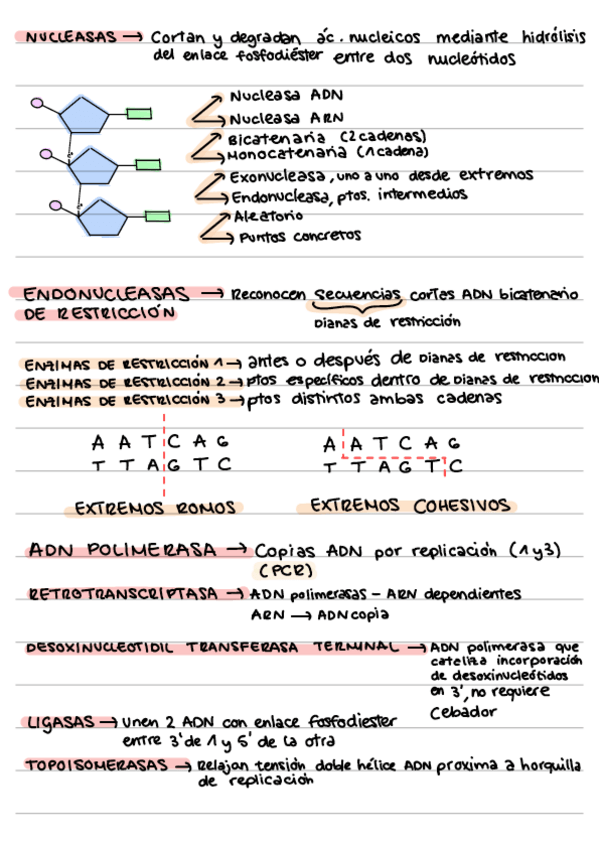 NUCLEASAS → Cortan y degradan ác. nucleicos mediante hidrólisis
del enlace fosfodiéster entre dos nucleótidos
Nucleasa ADN
Nucleasa ARN
Bicatenaria (2 cadenas)
Monocatenaria (1 cadena)
Exonucleasa, uno a uno desde extremos
Endonucleasa, ptos. intermedios
Aleatorio
Puntos concretos
ENDONUCLEASAS → Reconocen secuencias cortas ADN bicatenario
DE RESTRICCIÓN
Dianas de restricción
ENZIMAS DE RESTRICCIÓN 1 → antes o después de Dianas de restricción
ENZIMAS DE RESTRICCIÓN 2 → ptos específicos dentro de Dianas de restricción
ENZIMAS DE RESTRICCIÓN 3 → ptos distintos ambas cadenas
A A T C A G
T T A G T C
EXTREMOS ROMOS
A A T C A G
T T A G T C
EXTREMOS COHESIVOS
ADN POLIMERASA → Copias ADN por replicación (1 y 3)
(PCR)
RETROTRANSCRIPTASA → ADN polimerasas - ARN dependientes
ARN → ADN copia
DESOXINUCLEOTIDIL TRANSFERASA TERMINAL → ADN polimerasa que
cataliza incorporación
de desoxinucleótidos
en 3', no requiere
Cebador
LIGASAS → Unen 2 ADN con enlace fosfodiester
entre 3' de 1 y 5' de la otra
TOPOISOMERASAS → Relajan tensión doble hélice ADN proxima a horquilla
de replicación